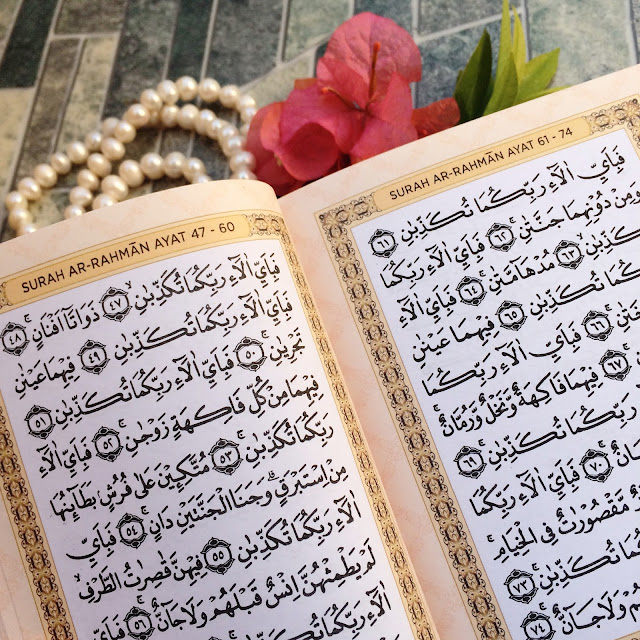 SURAH AR-RAHMĀN AYAT 47 - 60
فَبِاَيِّ اٰلَاۤءِ رَبِّكُمَا تُكَذِّبٰنِۙ ٤٧ ذَوَاتَآ اَفْنَانٍۚ ٤٨
فَبِاَيِّ اٰلَاۤءِ رَبِّكُمَا تُكَذِّبٰنِ ٤٩ فِيْهِمَا عَيْنٰنِ
تَجْرِيٰنِۚ ٥٠ فَبِاَيِّ اٰلَاۤءِ رَبِّكُمَا تُكَذِّبٰنِ ٥١
فِيْهِمَا مِنْ كُلِّ فَاكِهَةٍ زَوْجٰنِۚ ٥٢ فَبِاَيِّ اٰلَاۤءِ
رَبِّكُمَا تُكَذِّبٰنِۚ ٥٣ مُتَّكِـِٕيْنَ عَلٰى فُرُشٍۢ بَطَاۤىِٕنُهَا
مِنْ اِسْتَبْرَقٍۗ وَجَنَا الْجَنَّتَيْنِ دَانٍۚ ٥٤ فَبِاَيِّ
اٰلَاۤءِ رَبِّكُمَا تُكَذِّبٰنِ ٥٥ فِيْهِنَّ قٰصِرٰتُ الطَّرْفِۙ
لَمْ يَطْمِثْهُنَّ اِنْسٌ قَبْلَهُمْ وَلَا جَاۤنٌّۚ ٥٦ فَبِاَيِّ
اٰلَاۤءِ رَبِّكُمَا
SURAH AR-RAHMĀN AYAT 61 - 74
فَبِاَيِّ اٰلَاۤءِ رَبِّكُمَا تُكَذِّبٰنِ ٦١
وَمِنْ دُوْنِهِمَا جَنَّتٰنِۚ ٦٢ فَبِاَيِّ اٰلَاۤءِ رَبِّكُمَا
تُكَذِّبٰنِۙ ٦٣ مُدْهَاۤمَّتٰنِۚ ٦٤ فَبِاَيِّ اٰلَاۤءِ
تُكَذِّبٰنِۚ ٦٥ فِيْهِمَا عَيْنٰنِ
٦٦ فَبِاَيِّ اٰلَاۤءِ رَبِّكُمَا
٦٧ فِيْهِمَا فَاكِهَةٌ وَّنَخْلٌ وَّرُمَّانٌۚ
رَبِّكُمَا تُكَذِّبٰنِۚ ٦٩
٧٠ فَبِاَيِّ اٰلَاۤءِ رَبِّكُمَا
مَّقْصُوْرٰتٌ فِى الْخِيَامِۚ
تُكَذِّبٰنِۚ ٧٣
وَلَا جَاۤنٌّۚ ٧٤